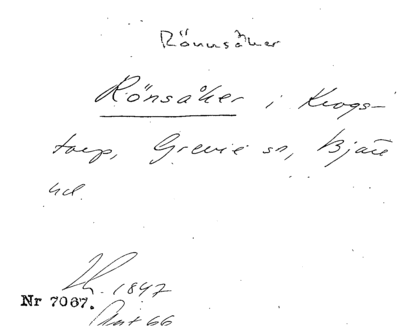 Rönnsåker
Rönsåker i Krogs-
torp, Grevie sn, Bjäre
hd.
1847
Nr 7067.
akt 66